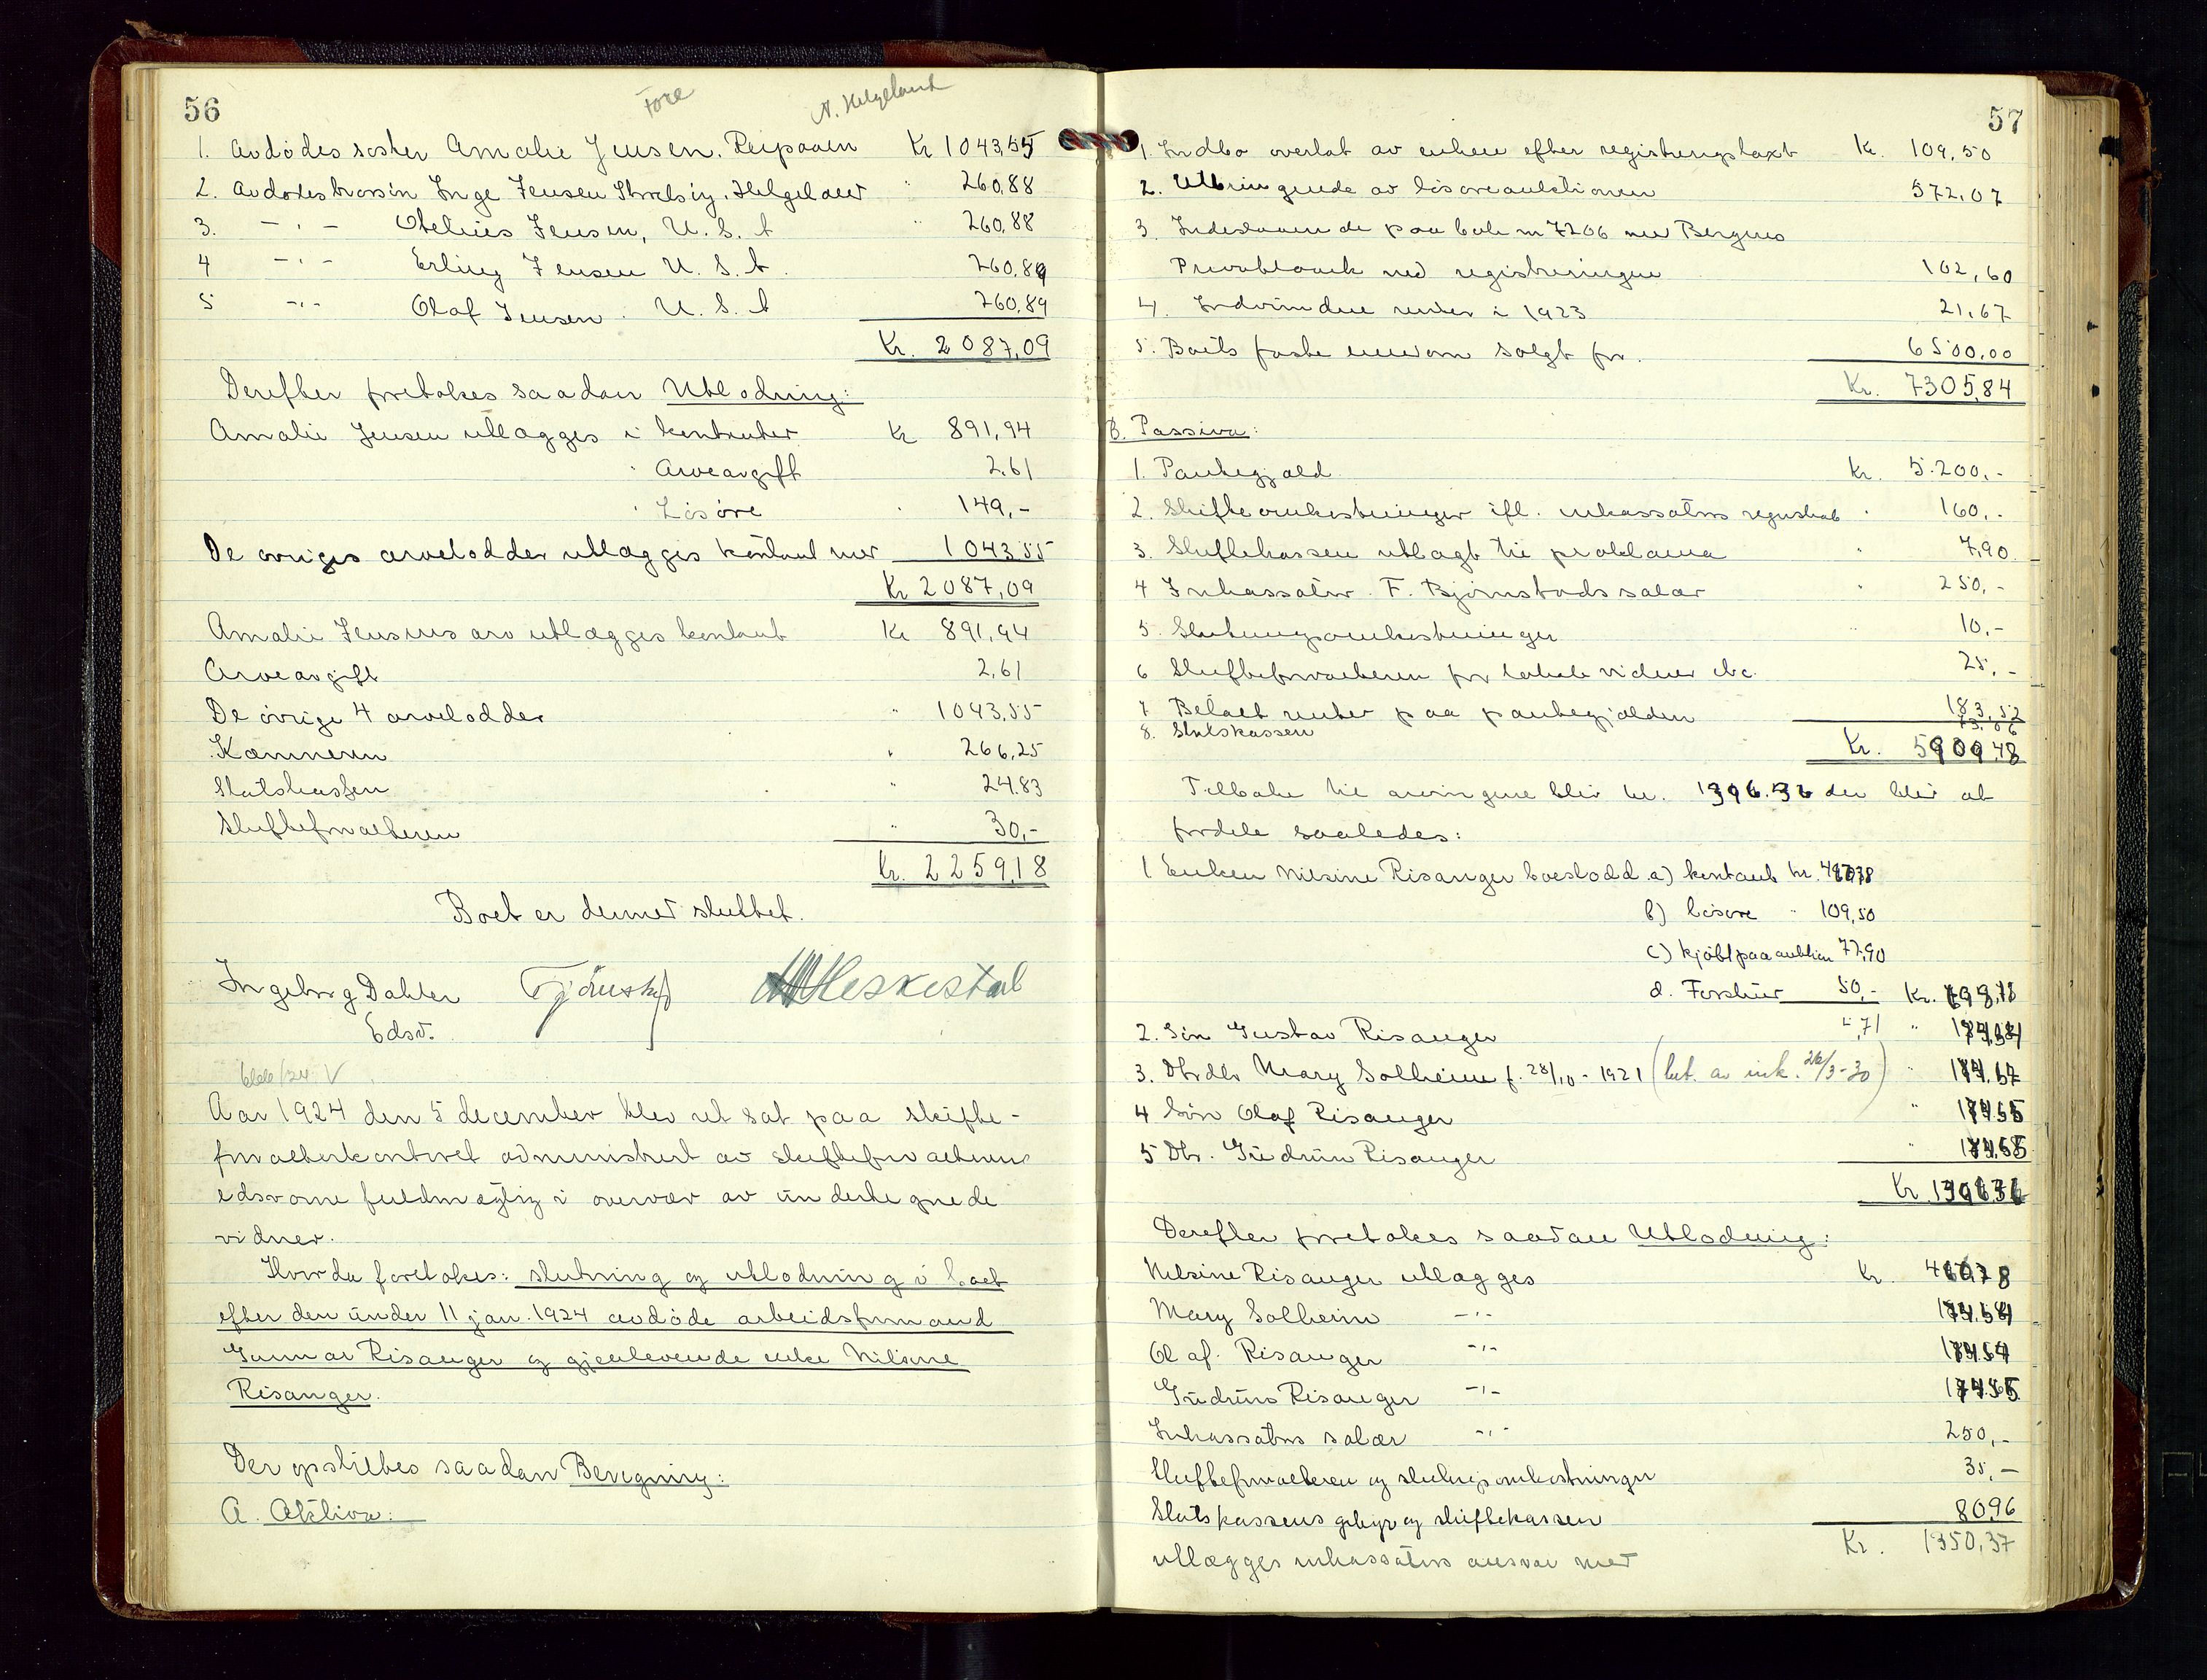 56
Fore
N. Helgeland
1. Avdødes søster Amalie Jensen, Reipaaen Kr 1043,55
2. Avdødes brorsøn Inge Jensen, Helgeland " 260,88
3. -"- Otelius Jensen, U. S. A " 260,88
4 -"- Erling Jensen U. S. A. 260,89
5 -"- Olaf Jensen U. S. A 260,89
Kr. 2087,09
Derefter foretokes saadan Utlodning:
Amalie Jensen utlægges i kontanter Kr 891,94
" Arveavgift 2,61
" Løsøre " 149,-
De øvriges arvelodder utlægges kontant med 1043,55
Kr 2087,09
Amalie Jensens arv utlægges kontant Kr 891,94
Arveavgift 2,61
De øvrige 4 arvelodder " 1043,55
Kæmneren " 266,25
Statskassen " 24.83
Skifteforvalteren " 30,-
Kr. 2259,18
Boet er dermed sluttet.
Ingeborg Dahler
Edsv.
Aar 1924 den 5 december blev ret sat paa skifte-
forvalterkontoret administrert av skifteforvalterens
edsvorne fuldmægtig i overvær av undertegnede
vidner.
Hvorda foretokes: slutning og utlodning i boet
efter den under 11 jan. 1924 avdøde arbeidsformand
Gunnar Risanger og gjenlevende enke Nilsine
Risanger.
Der opstilles saadan Beregning:
A. Aktiva:
57
1. Indbo overlat av enken efter registreringstakst Kr. 109,50
2. Utbringende av løsøreauktionen 572,07
3. Indestaaende paa bok nr 7206 med Bergens
Privatbank ved registreringen 102,60
4. Indvundne renter i 1923 21,67
5. Boets faste eiendom solgt for. 6500,00
Kr. 7305,84
B. Passiva:
1. Pantegjæld Kr. 5.200,-
2. Skifteomkostninger ifl. inkassators regnskab " 160,-
3. Skiftekassen utlagt til proklama " 7,90
4 Inkassator F. Bjørnstads salær " 250,-
5. Slutningsomkostninger " 10,-
6 Skifteforvalteren for takst vidner etc. 25,-
7 Betalt renter paa pantegjælden 183,52
8. Statskassen 73,06
Kr. 5909,48
Tilbake til arvingene blir kr. 1396.36 der blir at
fordele saaledes:
1 Enken Nilsine Risanger boeslodd a) kontant kr.
b) løsøre " 109,50
c) kjøbt paa auktion 72,90
d. Forskud 50,- Kr.
2. Søn Gustav Risanger "
3. Dtr. Mary Solheim f. 28/10 - 1921 (av ink. 26/3-30) "
4 Søn Olaf Risanger "
5 Dtr. Gudrun Risanger "
Kr 1396,36
Derefter foretokes saadan Utlodning:
Nilsine Risanger utlægges Kr.
Mary Solheim -"-
Olaf Risanger -"-
Gudrun Risanger -"-
Inkassators salær -"- 250,-
Skifteforvalteren og slutningsomkostninger 35,-
Statskassens gebyr og skiftekassen 80,96
utlægges inkassators ansvar med Kr. 1350,37